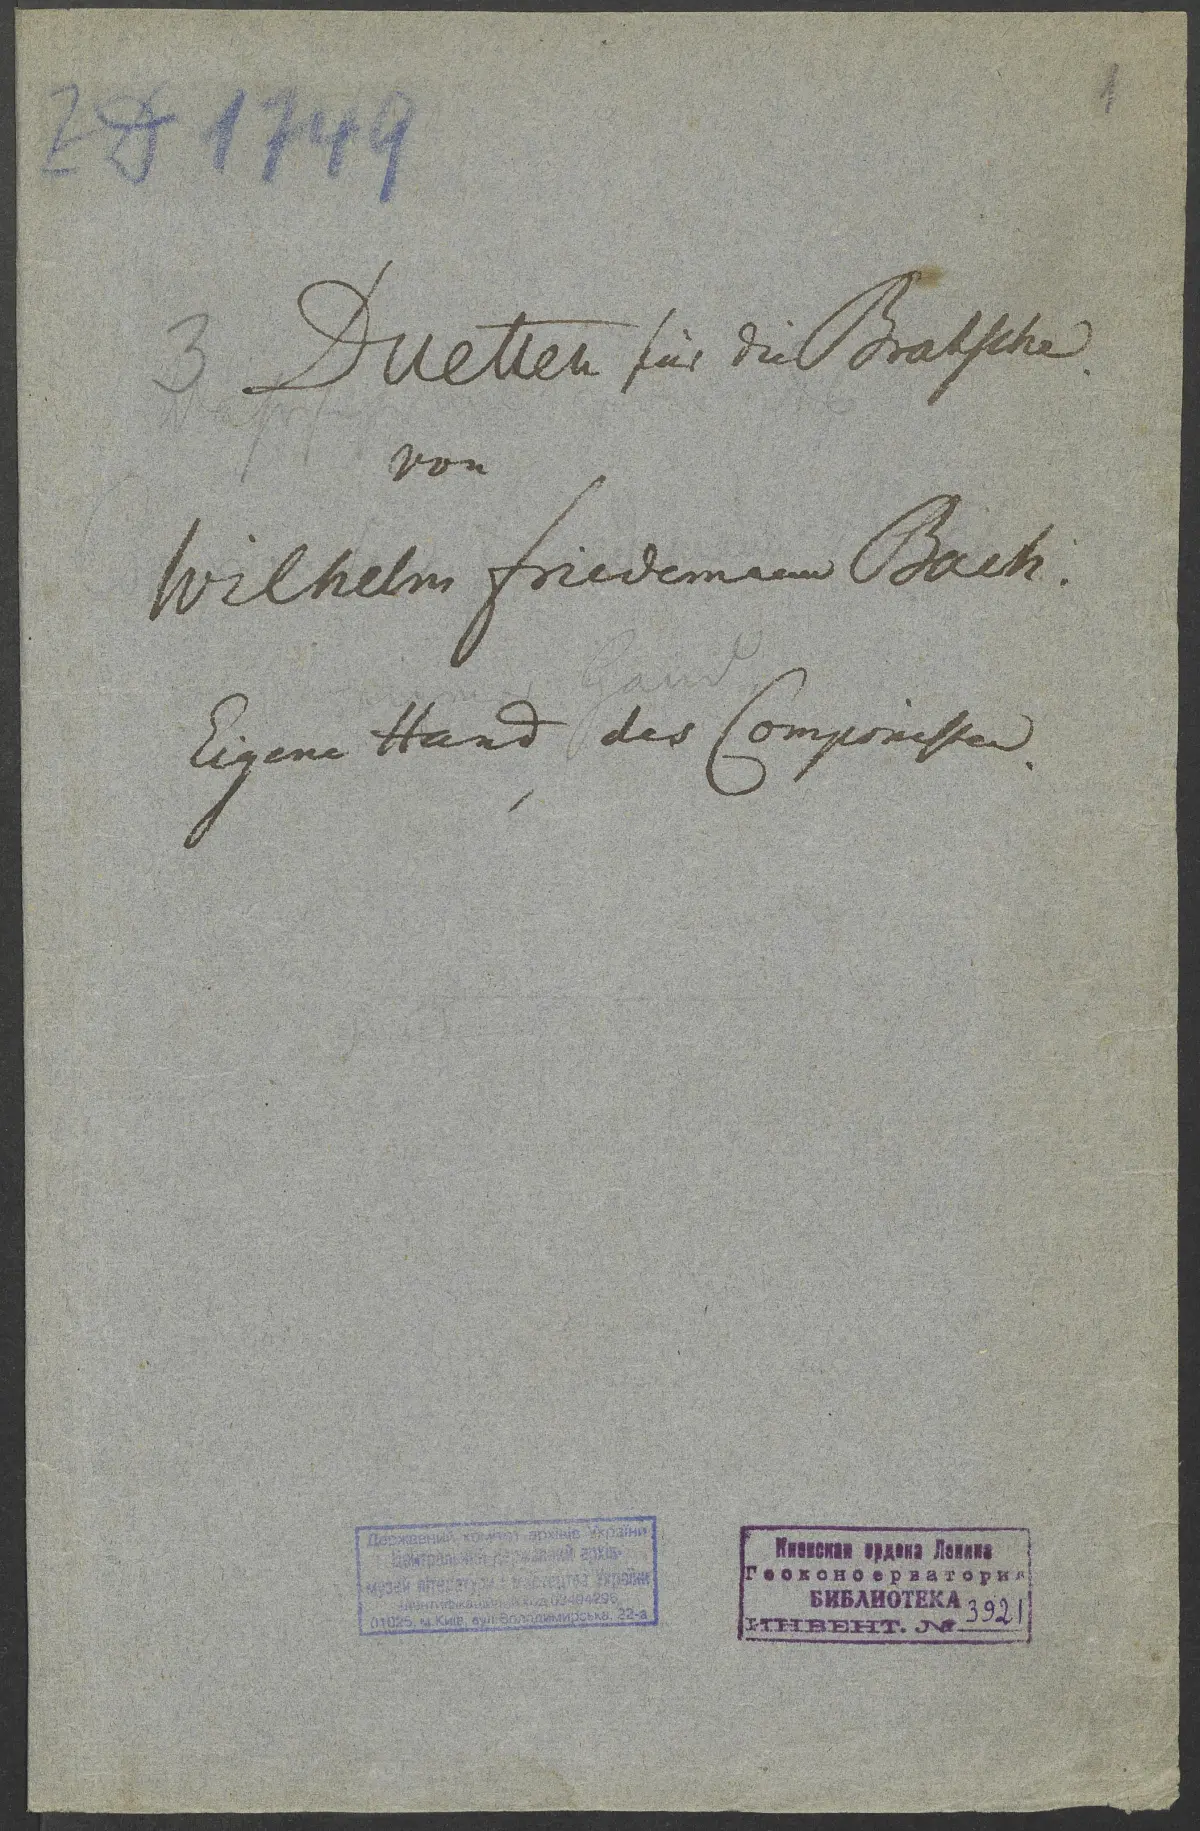 ZD 1749
1
3 Duetten für die Bratsche.
von
Wilhelm Friedemann Bach.
Eigene Hand des Componisten.
Hand
Державний комітет архівів України
Центральний державний архів-
музей літератури і мистецтва України
01025, м.Київ, вул.Володимирська, 22-а
Киевская ордена Ленина
Госконсерватория
БИБЛИОТЕКА
ИНВЕНТ. № 3921